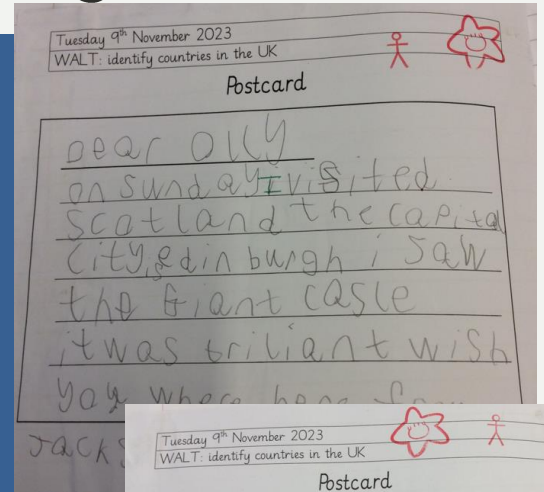 Tuesday 9th November 2023
WALT: identify countries in the UK
Postcard
Dear Olly
on sunday I visited
scotland the capital
city, edinburgh i saw
the Giant casle
it was briliant wish
you where
Jacks
Tuesday 9th November 2023
WALT: identify countries in the UK
Postcard